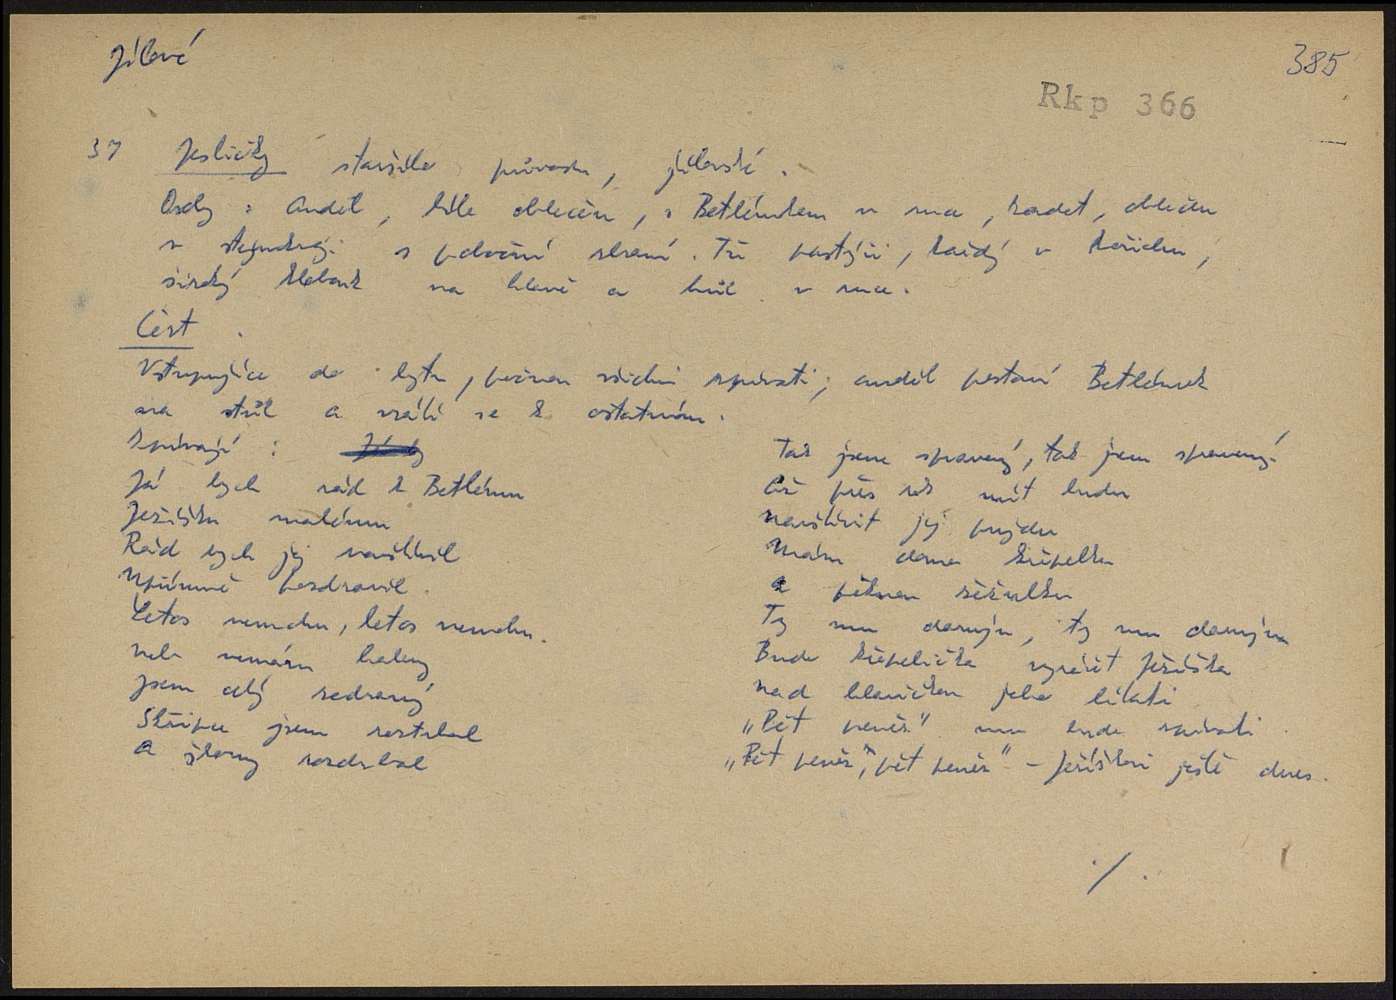 Jílové
385
Rkp 366
37 Jesličky staršího původu, jílovské.
Osoby: Anděl, bíle oblečen, s Betlémkem v ruce, kadet, oblečen
v s polnční zbraní. Tři pastýři, každý v kožichu,
široký klobouk na hlavě a hůl v ruce.
Část
Vstupujíce do bytu, počnou všichni zpívati; anděl postaví Betlémek
na stůl a vrátí se k ostatním.
Zpívají:
Já bych rád k Betlému
Ježíšku malému
Rád bych jej navštívil
Upřímně pozdravil.
Letos nemohu, letos nemohu.
neb nemám haleny
jsem celý sedraný
Skřipce jsem roztrhal
a šlarny rozdrbal
Tak jsem spravený, tak jsem spravený.
Až přes rok mít budu
navštívit jej pujdu
Mám doma křepelku
a pěknou sežulku
Ty mu daruju, ty mu daruju
Bude křepelička vyrážit Ježíška
nad hlavičkou jeho lítati
„Pět peněz" mu bude zpívati.
„Pět peněz", „pět peněz" – Ježíškovi ještě dnes.
./.